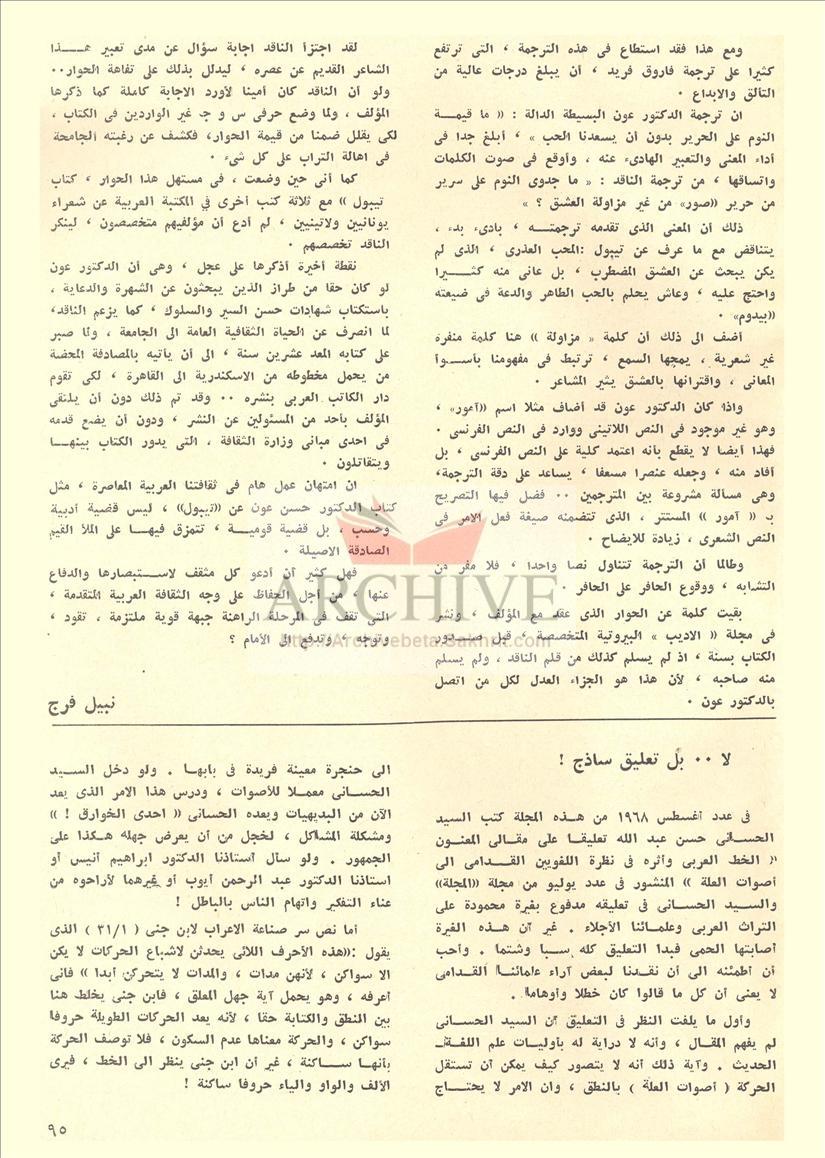 ومع هذا فقد استطاع فى هذه الترجمة ، التى ترتفع
كثيرا على ترجمة فاروق فريد ، أن يبلغ درجات عالية من
التألق والابداع ٠
ان ترجمة الدكتور عون البسيطة الدالة : « ما قيمة
النوم على الحرير بدون أن يسعدنا الحب » ، أبلغ جدا فى
أداء المعنى والتعبير الهادىء عنه ، وأوقع فى صوت الكلمات
واتساقها ، من ترجمة الناقد : « ما جدوى النوم على سرير
من حرير «صور» من غير مزاولة العشق ؟ »
ذلك أن المعنى الذى تقدمه ترجمتــه ، بادىء بدء ،
يتناقض مع ما عرف عن تيبول :المحب العذرى ، الذى لم
يكن يبحث عن العشق المضطرب ، بل عانى منه كثـــيرا
واحتج عليه ، وعاش يحلم بالحب الطاهر والدعة فى ضيعته
«بيدوم» ٠
أضف الى ذلك أن كلمة « مزاولة » هنا كلمة منفرة
غير شعرية ، يمجها السمع ، ترتبط فى مفهومنا بأســوأ
المعانى ، واقترانها بالعشق يثير المشاعر ٠
واذا كان الدكتور عون قد أضاف مثلا اسم «آمور» ،
وهو غير موجود فى النص اللاتينى ووارد فى النص الفرنسى ٠
فهذا أيضا لا يقطع بأنه اعتمد كلية على النص الفرنسى ، بل
أفاد منه ، وجعله عنصرا مسعفا ، يساعد على دقة الترجمة،
وهى مسألة مشروعة بين المترجمين ٠٠ فضل فيها التصريح
بـ « آمور » المستتر ، الذى تتضمنه صيغة فعل الامر فى
النص الشعرى ، زيادة للايضاح ٠
وطالما أن الترجمة تتناول نصا واحدا ، فلا مفر من
التشابه ، ووقوع الحافر على الحافر ٠
بقيت كلمة عن الحوار الذى عقد مع المؤلف ، ونشر
فى مجلة « الاديب » البيروتية المتخصصة ، قبل صــدور
الكتاب بسنة ، اذ لم يسلم كذلك من قلم الناقد ، ولم يسلم
منه صاحبه ، لأن هذا هو الجزاء العدل لكل من اتصل
بالدكتور عون ٠
لقد اجتزأ الناقد اجابة سؤال عن مدى تعبير هـــذا
الشاعر القديم عن عصره ، ليدلل بذلك على تفاهة الحوار٠٠
ولو أن الناقد كان أمينا لأورد الاجابة كاملة كما ذكرها
المؤلف ، ولما وضع حرفى س و جـ غير الواردين فى الكتاب ،
لكى يقلل ضمنا من قيمة الحوار، فكشف عن رغبته الجامحة
فى اهالة التراب على كل شىء ٠
كما أنى حين وضعت ، فى مستهل هذا الحوار ، كتاب
تيبول » مع ثلاثة كتب أخرى في المكتبة العربية عن شعراء
يونانيين ولاتينيين ، لم أدع أن مؤلفيهم متخصصون ، لينكر
الناقد تخصصهم ٠
نقطة أخيرة أذكرها على عجل ، وهى أن الدكتور عون
لو كان حقا من طراز الذين يبحثون عن الشهرة والدعاية ،
باستكتاب شهادات حسن السير والسلوك ، كما يزعم الناقد،
لما انصرف عن الحياة الثقافية العامة الى الجامعة ، ولما صبر
على كتابه المعد عشرين سنة ، الى أن يأتيه بالمصادفة المحضة
من يحمل مخطوطه من الاسكندرية الى القاهرة ، لكى تقوم
دار الكاتب العربى بنشره ٠٠ وقد تم ذلك دون أن يلتقى
المؤلف بأحد من المسئولين عن النشر ، ودون أن يضع قدمه
فى احدى مبانى وزارة الثقافة ، التى يدور الكتاب بينهــا
ويتقاتلون ٠
ان امتهان عمل هام فى ثقافتنا العربية المعاصرة ، مثل
كتاب الدكتور حسن عون عن «تيبول» ، ليس قضية أدبية
وحسب ، بل قضية قوميــة ، تتمزق فيهــا على الملأ القيم
الصادقة الاصيلة ٠
فهل كثير أن أدعو كل مثقف لاســتبصارها والدفاع
عنها ، من أجل الحفاظ على وجه الثقافة العربية المتقدمة ،
التى تقف فى المرحلة الراهنة جبهة قوية ملتزمة ، تقود ،
وتوجه ، وتدفع الى الأمام ؟
نبيل فرج
ARCHIVE
http://Archivebeta.Sakhrit.com
لا ٠٠ بل تعليق ساذج !
فى عدد أغسطس ١٩٦٨ من هــذه المجلة كتب السيد
الحسانى حسن عبد الله تعليقــا على مقالى المعنــون
« الخط العربى وأثره فى نظرة اللغويين القدامى الى
أصوات العلة » المنشور فى عدد يوليو من مجلة «المجلة»
والسيد الحسانى فى تعليقه مدفوع بغيرة محمودة على
التراث العربى وعلمــائنا الأجلاء ٠ غير أن هــذه الغيرة
أصابتها الحمى فبدا التعليق كله ســبا وشتما ٠ وأحب
أن أطمئنه الى أن نقدنــا لبعض آراء علمائنــا القدامى
لا يعنى أن كل ما قالوا كان خطلا وأوهاما ٠
وأول ما يلفت النظر فى التعليق أن السيد الحسانى
لم يفهم المقال ، وأنه لا دراية له بأوليات علم اللغــة
الحديث ٠ وآية ذلك أنه لا يتصور كيف يمكن أن تستقل
الحركة ( أصوات العلة ) بالنطق ، وان الامر لا يحتــاج
الى حنجرة معينة فريدة فى بابهــا ٠ ولو دخل الســيد
الحسانى معمــلا للأصوات ، ودرس هذا الامر الذى يعد
الآن من البديهيات ويعده الحسانى « احدى الخوارق ! »
ومشكلة المشاكل ، لخجل من أن يعرض جهله هــكذا على
الجمهور ٠ ولو سأل أستاذنا الدكتور ابراهيم أنيس أو
استاذنا الدكتور عبد الرحمن أيوب أو غيرهما لأراحوه من
عناء التفكير واتهام الناس بالباطل !
أما نص سر صناعة الاعراب لابن جنى ( ٣١/١ ) الذى
يقول :«هذه الأحرف اللائى يحدثن لاشباع الحركات لا يكن
الا سواكن ، لأنهن مدات ، والمدات لا يتحركن أبدا » فانى
أعرفه ، وهو يحمل آية جهل المعلق ، فابن جنى يخلط هنا
بين المنطق والكتابة حقا ، لأنه يعد الحركات الطويلة حروفا
سواكن ، والحركة معناها عدم السكون ، فلا توصف الحركة
بأنهــا ســاكنة ، غير أن ابن جنى ينظر الى الخط ، فيرى
الألف والواو والياء حروفا ساكنة !
٩٥